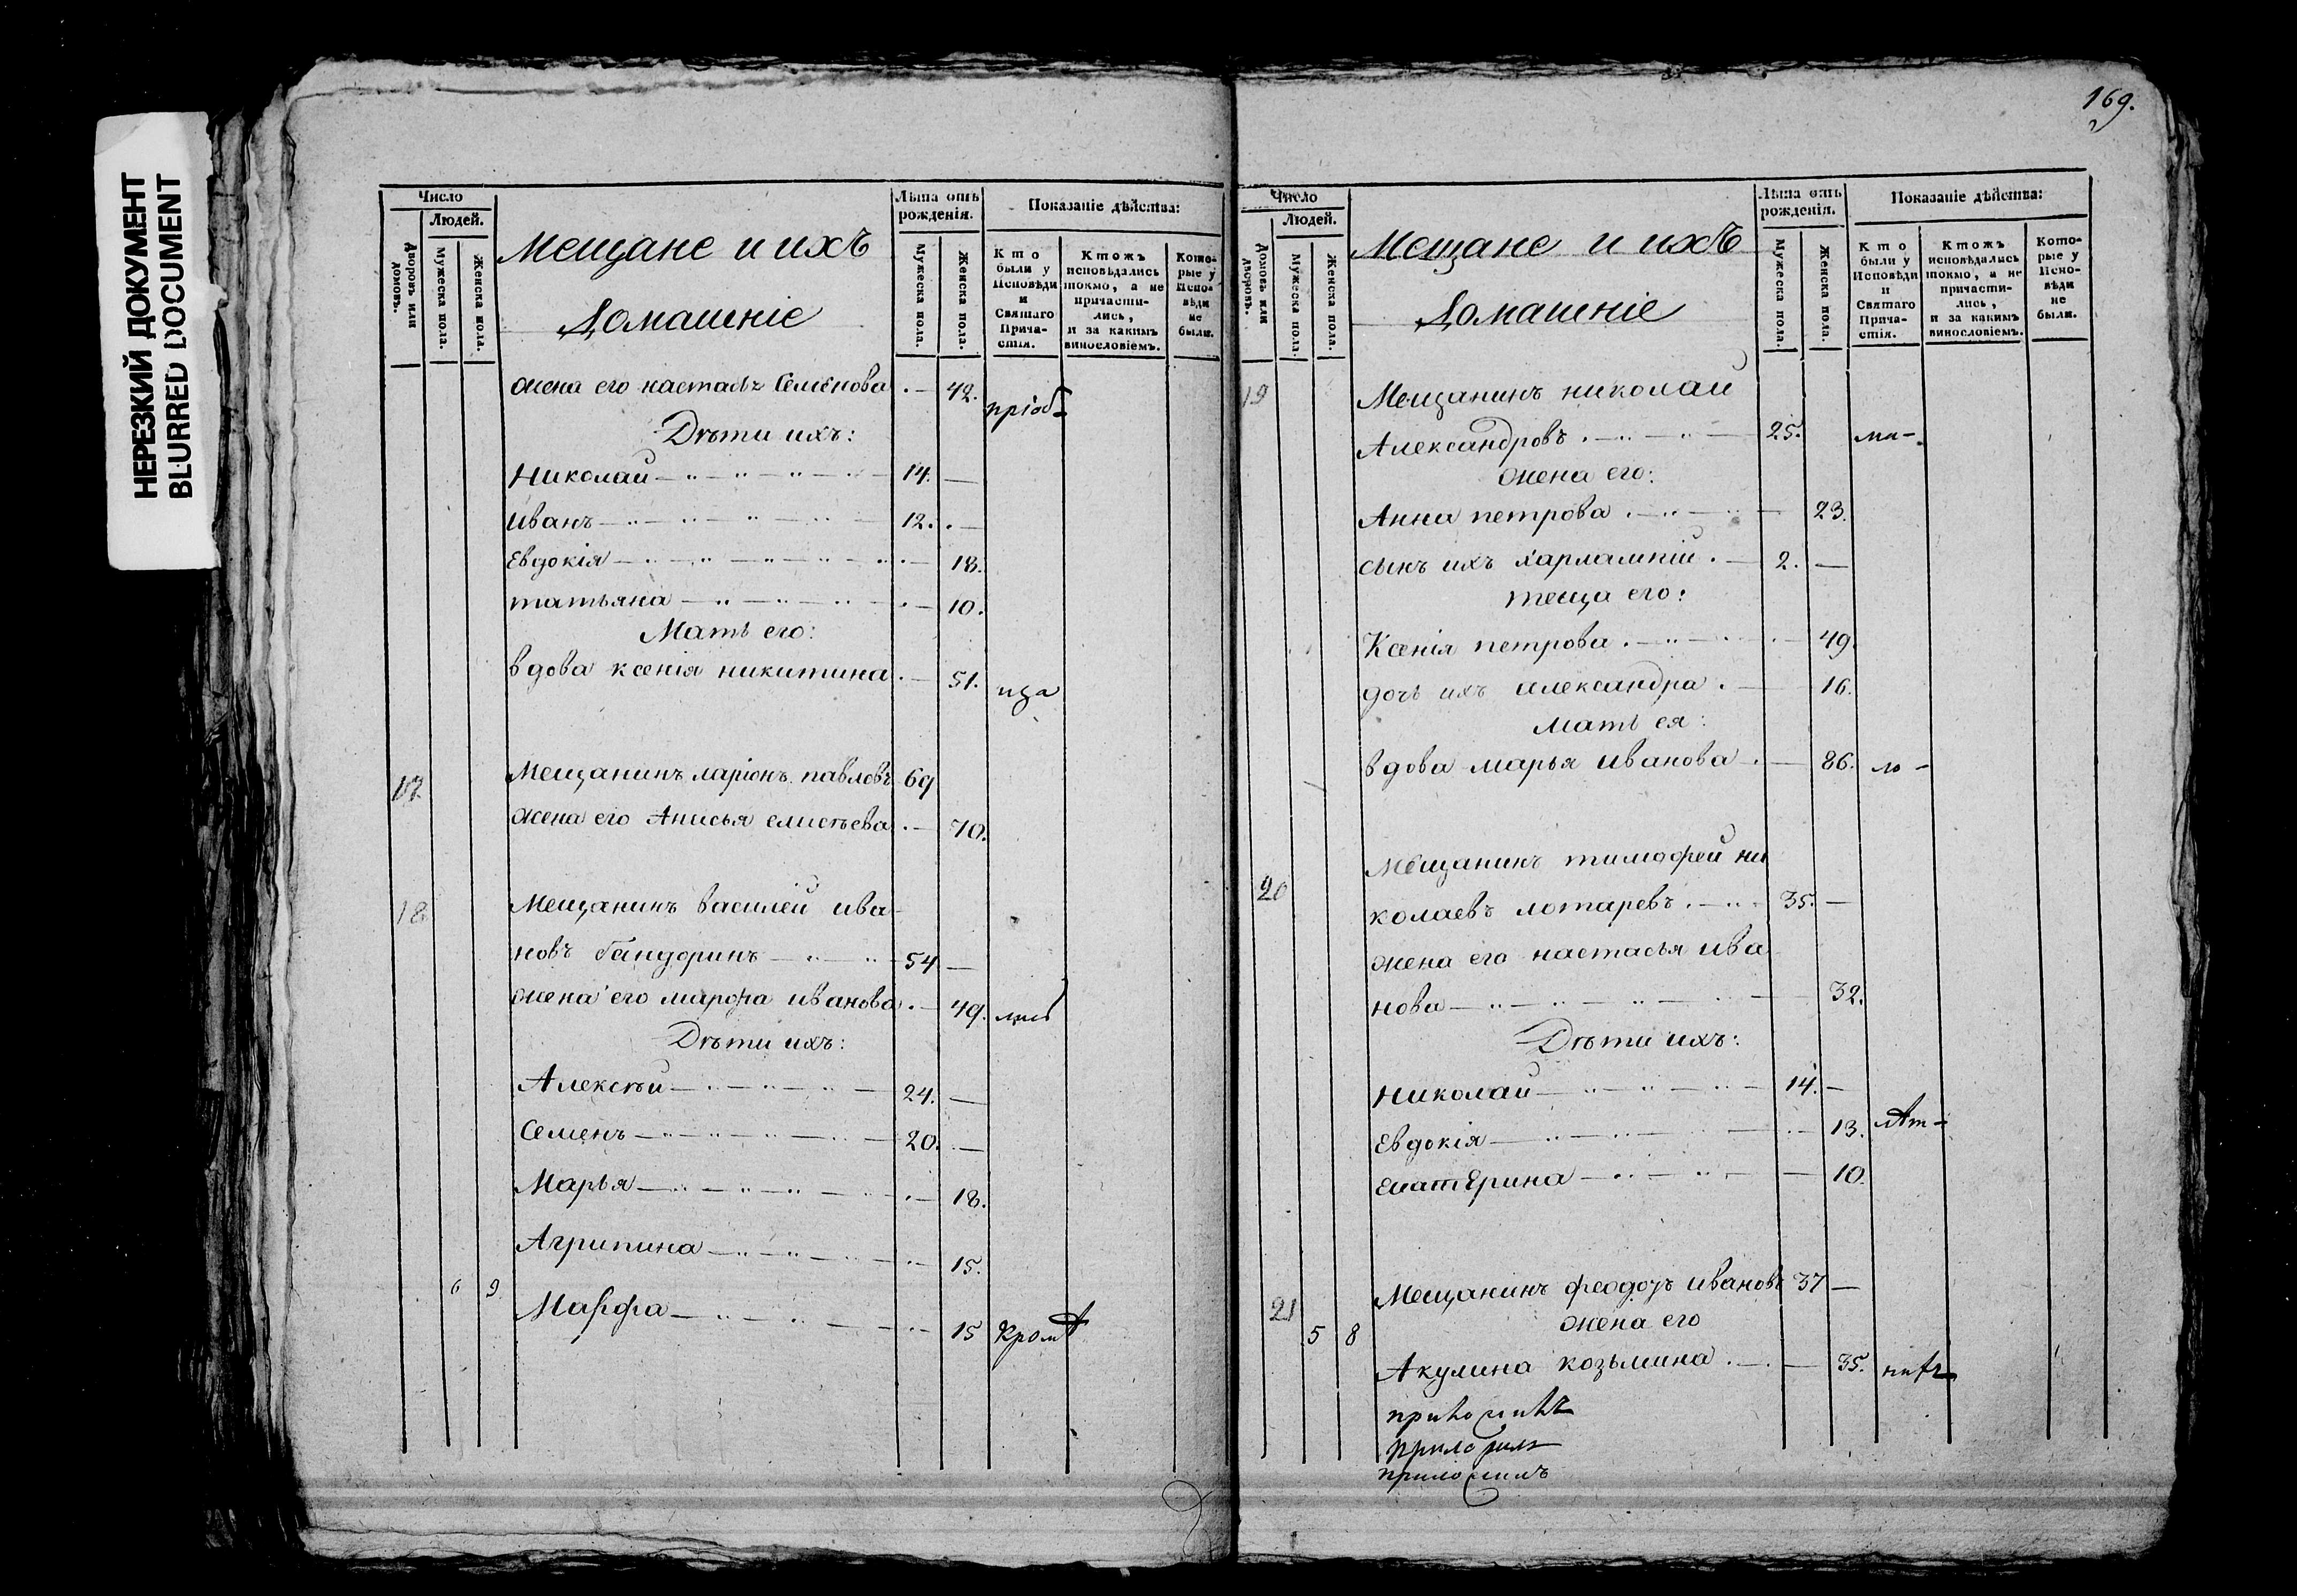 НЕРЕЗКИЙ ДОКУМЕНТ
BLURRED DOCUMENT
Число
Людей.
Дворовъ или домовъ.
Мужеска пола.
Женска пола.
Мещане и ихъ
Домашніе
Лѣта отъ рожденія.
Мужеска пола.
Женска пола.
Показаніе дѣйства:
Кто были у Исповѣди и Святаго Причастія.
Ктожъ исповѣдались токмо, а не причастились, и за какимъ винословіемъ.
Которые у Исповѣди не были.
жена его настасья Семенова 42. пріоб
Дѣти ихъ:
Николай 14.
Иванъ 12.
Евдокія 18.
татьяна 10.
Мать его:
вдова ксенія никитина 51.
17 Мещанинъ ларіонъ павловъ 69
жена его Анисья елисѣева 70.
18 Мещанинъ василей ива
новъ 54
жена его марфа иванова 49.
Дѣти ихъ:
Алексѣй 24.
Семенъ 20.
Марья 18.
Агрипина 15.
6 9
Марфа 15
169.
Число
Людей.
Домовъ или дворовъ.
Мужеска пола.
Женска пола.
Мещане и ихъ
Домашніе
Лѣта отъ рожденія.
Мужеска пола.
Женска пола.
Показаніе дѣйства:
Кто были у Исповѣди и Святаго Причастія.
Ктожъ исповѣдались токмо, а не причастились, и за какимъ винословіемъ.
Которые у Исповѣди не были.
19 Мещанинъ николай
Александровъ 25.
жена его:
Анна петрова 23.
сынъ ихъ харлампій 2.
теща его:
Ксенія петрова 49.
дочь ихъ александра 16.
мать ея:
вдова марья иванова 86. ло
20 Мещанинъ тимофей ни
колаевъ лотаревъ 35.
жена его настасья ива
нова 32.
Дѣти ихъ:
николай 14.
Евдокія 13.
екатерина 10.
21 Мещанинъ феодоръ ивановъ 37
жена его
5 8
Акулина козьмина 35.